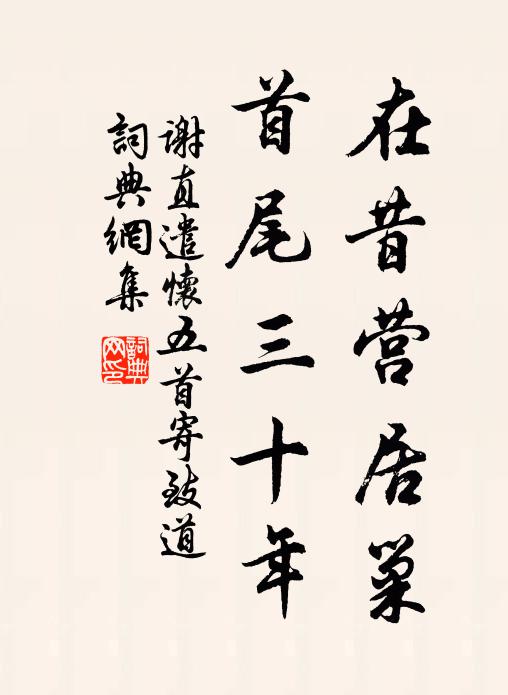 在昔营居巢
首尾三十年
谢直遣怀五首寄致道
詞典網集
詞典网印